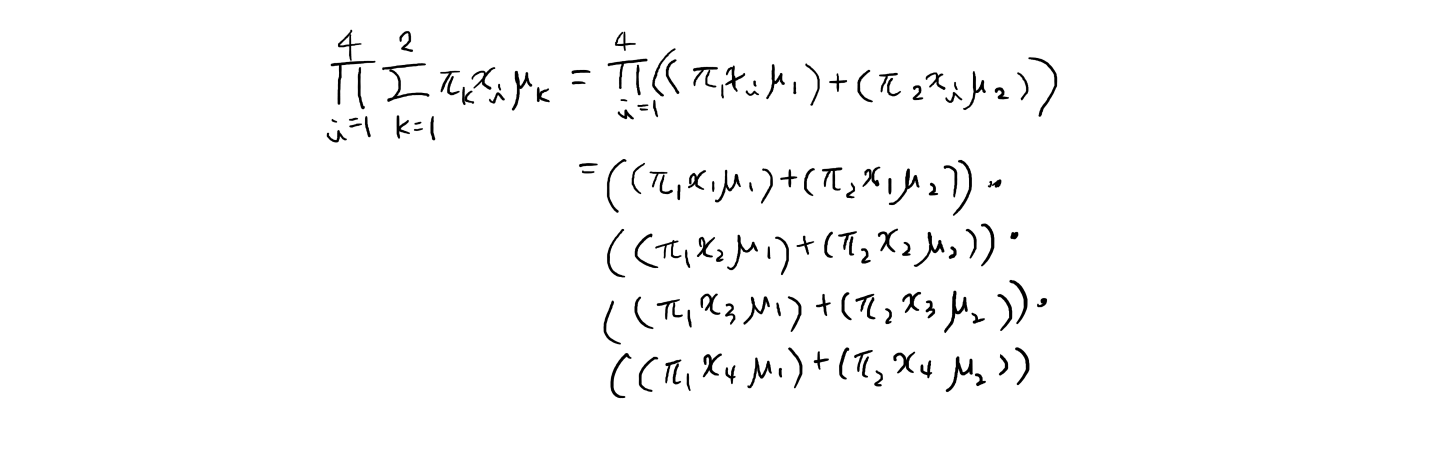 \prod_{i=1}^{4} \sum_{k=1}^{2} \pi_k x_i \mu_k = \prod_{i=1}^{4} ((\pi_1 x_i \mu_1) + (\pi_2 x_i \mu_2))
= ((\pi_1 x_1 \mu_1) + (\pi_2 x_1 \mu_2)) \cdot
((\pi_1 x_2 \mu_1) + (\pi_2 x_2 \mu_2)) \cdot
((\pi_1 x_3 \mu_1) + (\pi_2 x_3 \mu_2)) \cdot
((\pi_1 x_4 \mu_1) + (\pi_2 x_4 \mu_2))